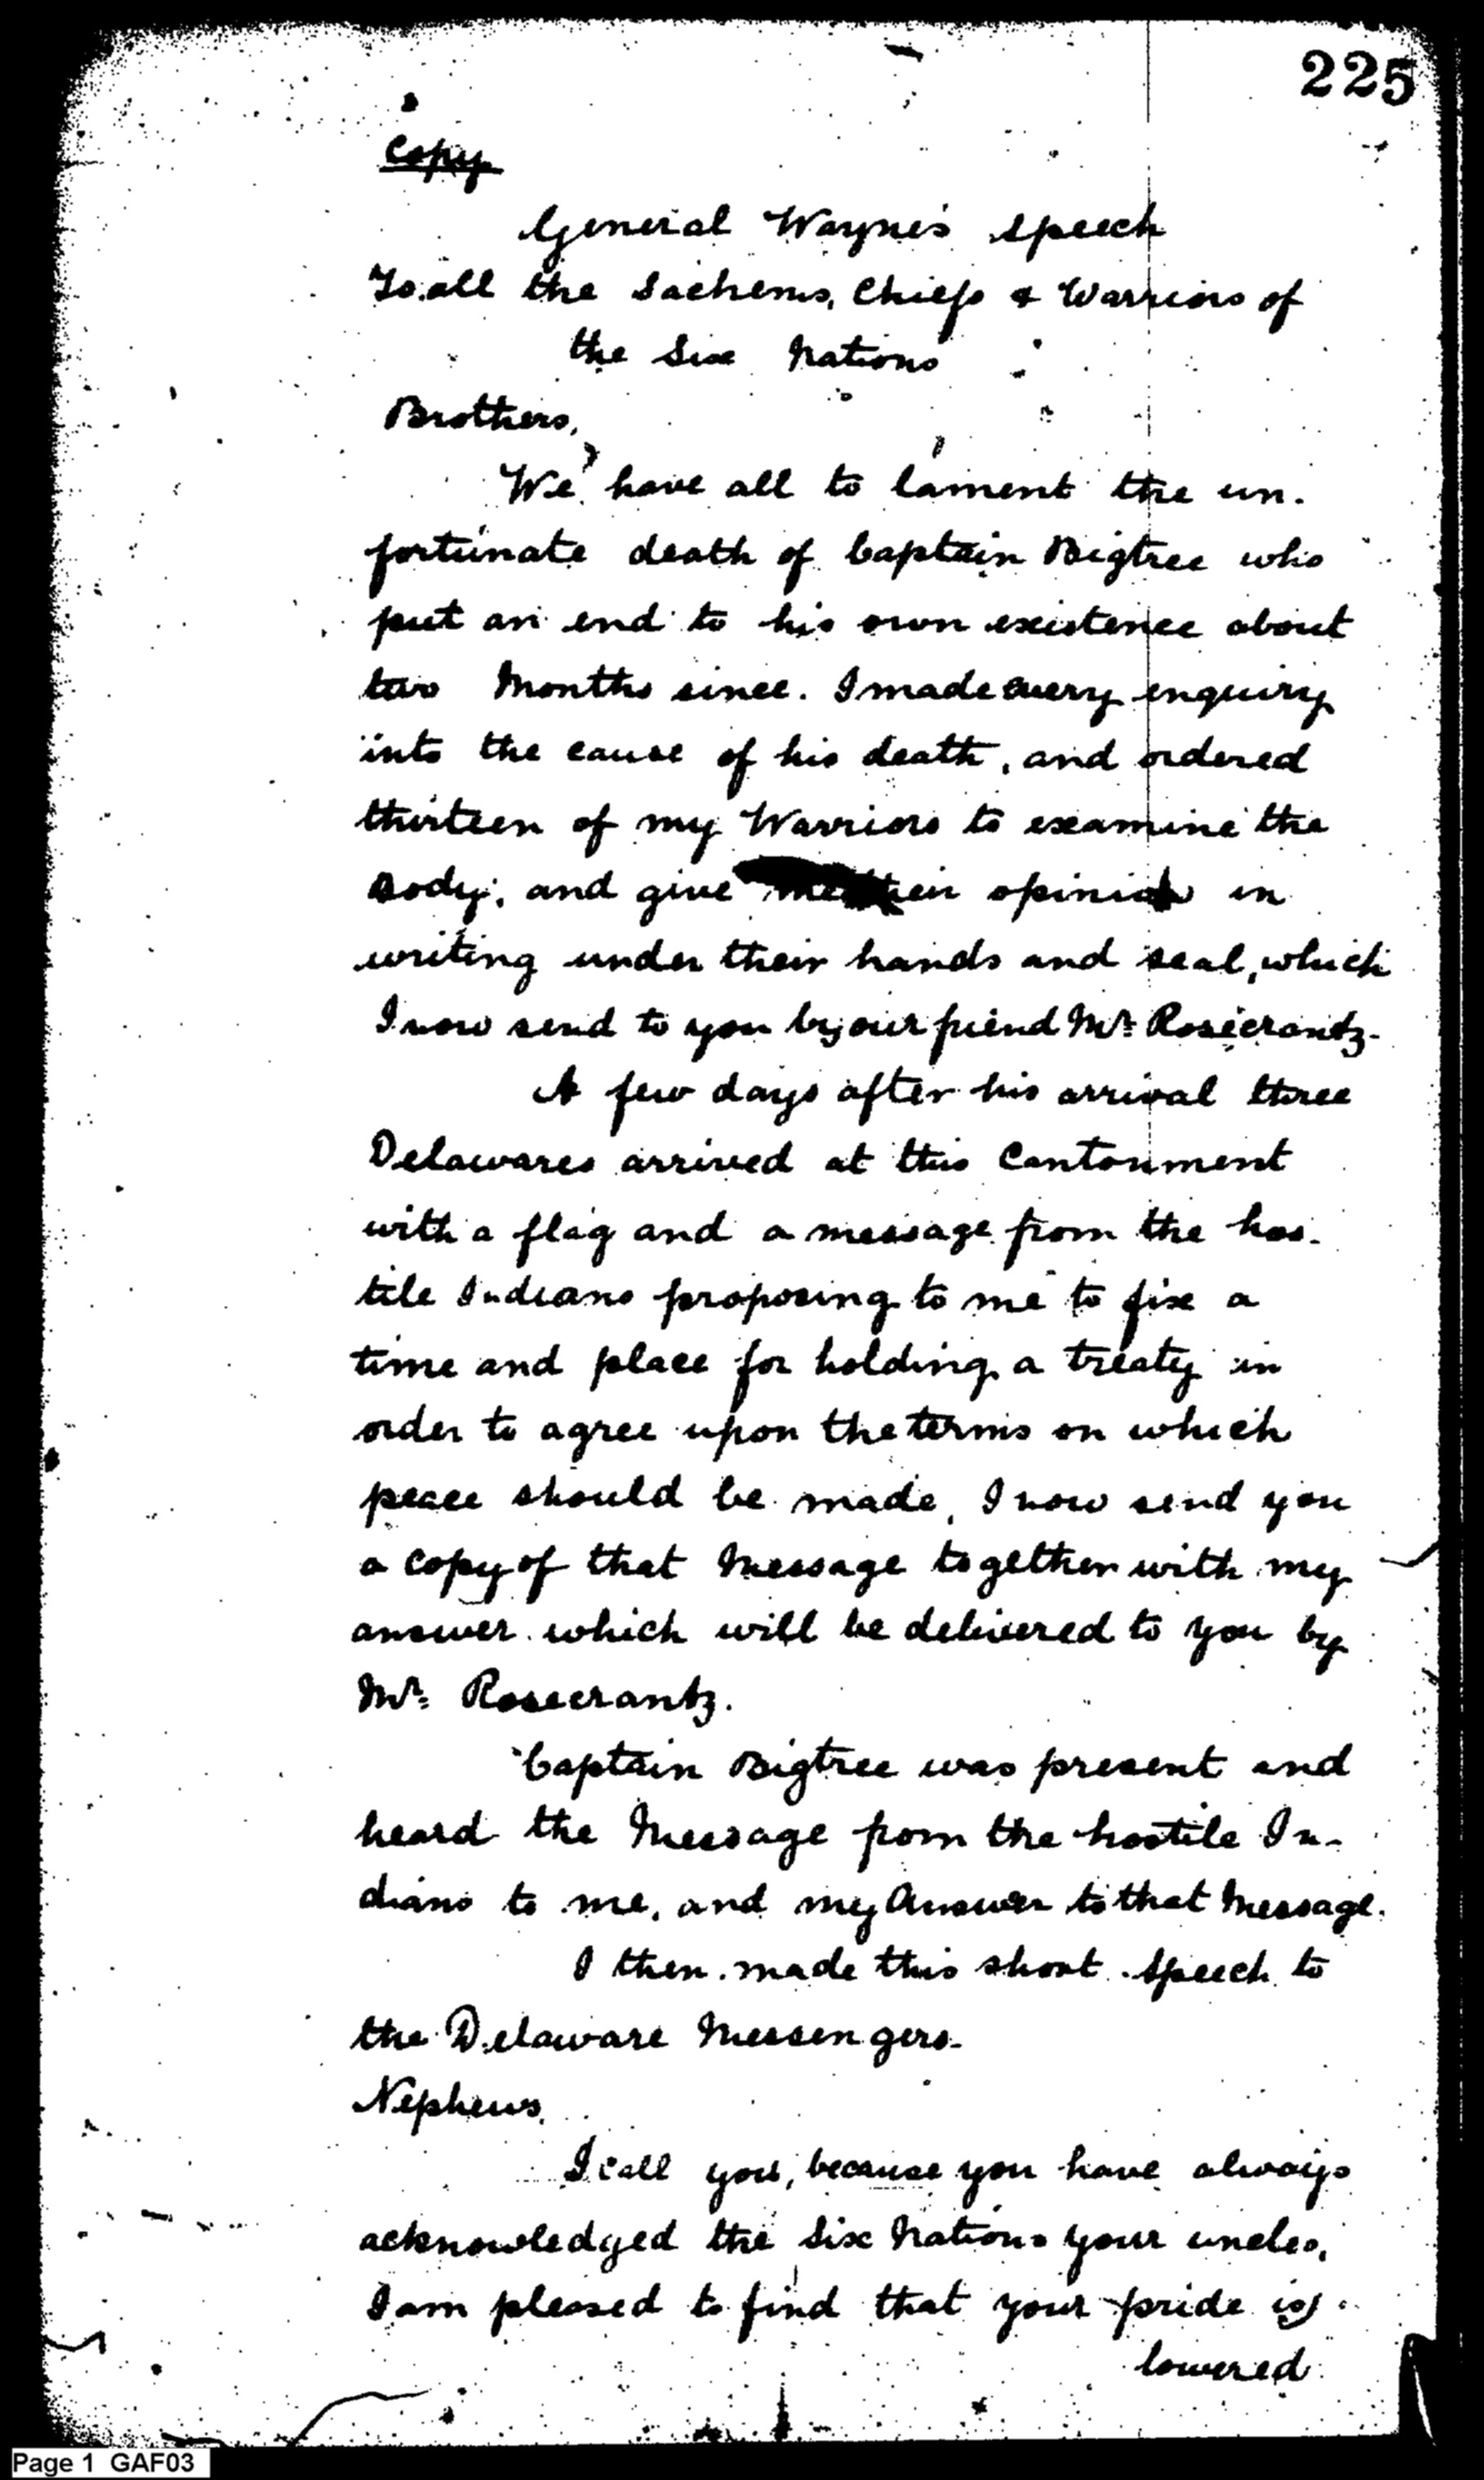 225
Copy
General Wayne's Speech
To all the Sachems, Chiefs & Warriors of
the Six Nations
Brothers,
We have all to lament the un-
fortunate death of Captain Bigtree who
put an end to his own existence about
two Months since. I made every enquiry
into the cause of his death, and ordered
thirteen of my Warriors to examine the
Body; and give me their opinion in
writing under their hands and seal, which
I now send to you by our friend Mr. Rosecrantz-
A few days after his arrival three
Delawares arrived at this Cantonment
with a flag and a message from the hos-
tile Indians proposing to me to fix a
time and place for holding a treaty in
order to agree upon the terms on which
peace should be made, I now send you
a Copy of that Message together with my
answer which will be delivered to you by
Mr. Rosecrantz.
Captain Bigtree was present and
heard the Message from the hostile In-
dians to me, and my Answer to that Message.
I then made this short Speech to
the Delaware Messengers-
Nephews,
I call you, because you have always
acknowledged the Six Nations your uncles,
I am pleased to find that your pride is
lowered
Page 1 GAF03